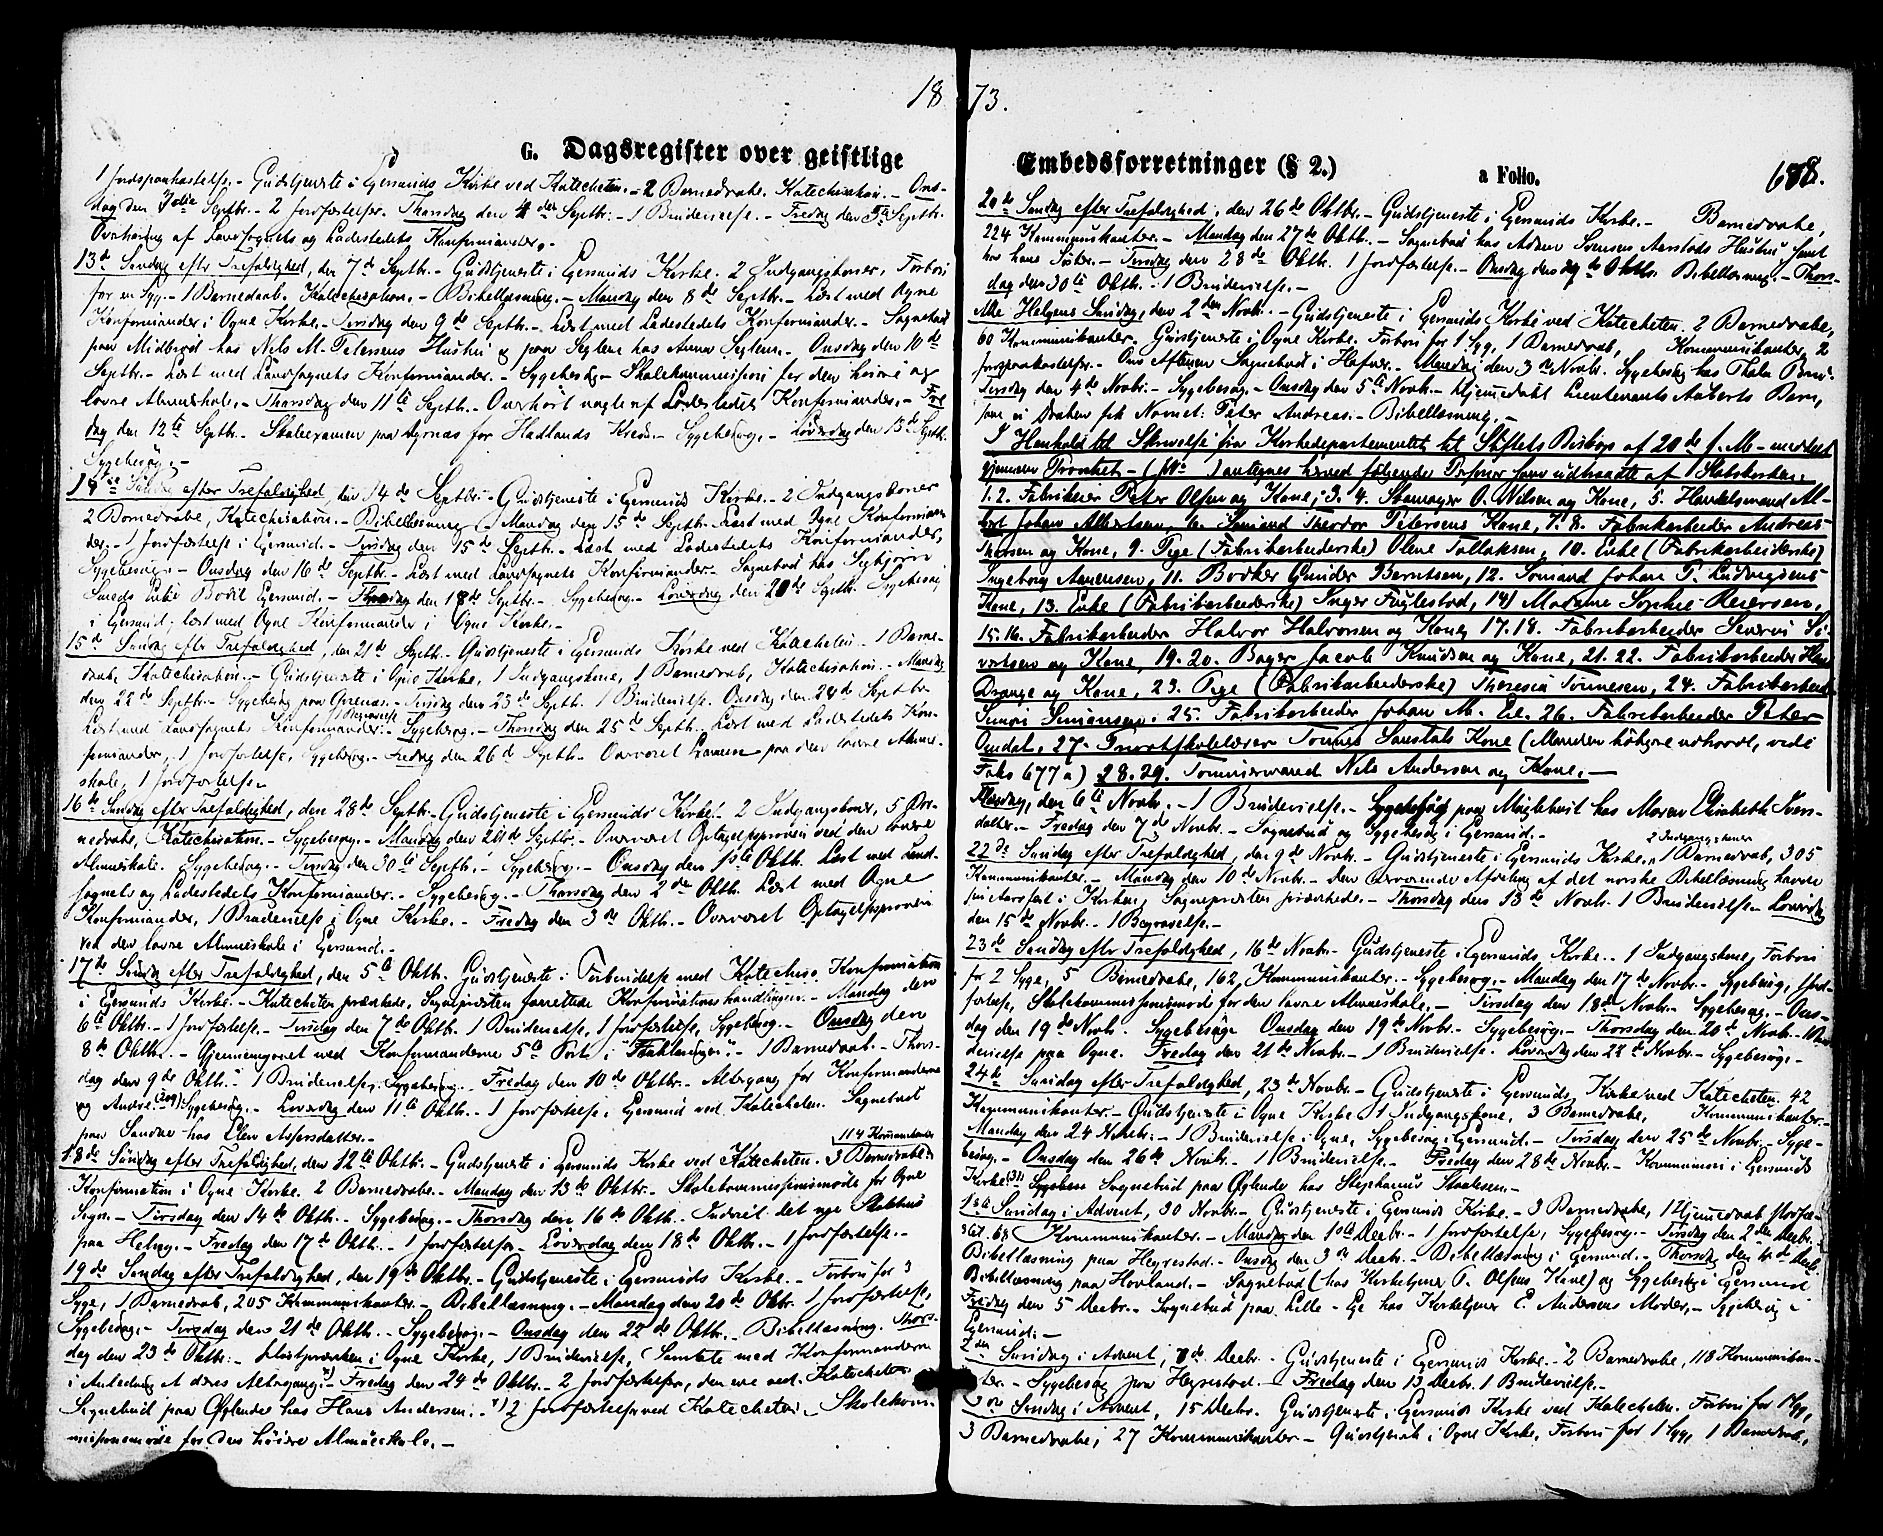 18 73.
G. Dagsregister over geistlige Embedsforretninger (§ 2.) a Folio. 678.
1 Jordspaakastelse. - Gudstjeneste i Egersunds Kirke ved Katecheten. - 2 Barnedaabe. Katechisation. - Ons-
dag den Septbr. - 2 Jordfæstelser. Thorsdag den 4de Septbr. - 1 Brudevielse. - Fredag den 5te Septbr.
af Landsognets og Ladestedets Konfirmander. -
13de Søndag efter Trefoldighed, den 7de Septbr. - Gudstjeneste i Egersunds Kirke. 2 Indgangskoner, Forbøn
for en Syg. - 1 Barnedaab. Katechisation. - Bibellæsning. - Mandag den 8de Septbr. - Læst med Ogne
Konfirmander i Ogne Kirke. - Tirsdag den 9de Septbr. - Læst med Ladestedets Konfirmander. - Sognebud
paa Midbrød hos Nils M. Petersens Hustru og paa Seglem hos Anna Seglem. - Onsdag den 10de
Septbr. - Læst med Landsognets Konfirmander. - Sygebesøg - Skolekommission for den høiere og
lavere Almueskole. - Thorsdag den 11te Septbr. - Overhørt nogle af Ladestedets Konfirmander. - Fre
dag den 12te Septbr. - Skoleexamen paa for Hadlands Kreds. - Sygebesøg. - Løverdag den 13de Septbr.
Sygebesøg. -
14de Søndag efter Trefoldighed, den 14de Septbr. - Gudstjeneste i Egersunds Kirke. - 2 Indgangskoner
2 Barnedaabe, Katechisation. - Bibellæsning. - Mandag den 15de Septbr. Læst med Ogne Konfirman
der. - 1 Jordfæstelse i Egersund. - Tirsdag den 15de Septbr. - Læst med Ladestedets Konfirmander,
Sygebesøg. - Onsdag den 16de Septbr. - Læst med Landsognets Konfirmander. - Sognebud hos
Smeds Enke Bodil Egersund. - Thorsdag den 18de Septbr. - Sygebesøg. - Løverdag den 20de Septbr. Sygebesøg
i Egersund, læst med Ogne Konfirmander i Ogne Kirke. -
15de Søndag efter Trefoldighed, den 21de Septbr. - Gudstjeneste i Egersunds Kirke ved Katecheten. - 1 Barne-
daab. Katechisation. - Gudstjeneste i Ogne Kirke, 1 Indgangskone, 1 Barnedaab, Katechisation. - Mandag
den 22de Septbr. - Sygebesøg paa - Tirsdag den 23de Septbr. 1 Brudevielse. Onsdag den 24de Septbr.
1 Begravelse
Læst med Landsognets Konfirmander. - Sygebesøg. - Thorsdag den 25de Septbr. Læst med Ladestedets Kon-
firmander, 1 Jordfæstelse, Sygebesøg. - Fredag den 26de Septbr. - Overværet Examen paa den lavere Almue-
skole, 1 Jordfæstelse. -
16de Søndag efter Trefoldighed, den 28de Septbr. - Gudstjeneste i Egersunds Kirke. 2 Indgangskoner, 5 Bar-
nedaabe, Katechisation. - Sygebesøg. - Mandag den 29de Septbr. - Overværet Optagelsesprøven ved den lavere
Almueskole. Sygebesøg. - Tirsdag den 30te Septbr. - Sygebesøg. - Onsdag den 1ste Oktb. Læst med Land-
sognets og Ladestedets Konfirmander. - Sygebesøg. - Thorsdag den 2de Oktb. Læst med Ogne
Konfirmander, 1 Brudevielse i Ogne Kirke. - Fredag den 3de Oktb. - Overværet Optagelsesprøven
ved den lavere Almueskole i Egersund. -
17de Søndag efter Trefoldighed, den 5te Oktb. Gudstjeneste i Forbindelse med Katechis. Konfirmation
i Egersunds Kirke. - Katecheten prækede, Sognepræsten forrettede Konfirmationshandlingen. - Mandag den
6te Oktbr. - 1 Jordfæstelse. - Tirsdag den 7de Oktbr. 1 Brudevielse, 1 Jordfæstelse, Sygebesøg. - Onsdag den
8de Oktbr. - Gjennemgaaet med Konfirmanderne 5te Part i - 1 Barnedaab. - Thors-
dag den 9de Oktb. 1 Brudevielse, Sygebesøg. Fredag den 10de Oktb. - Altergang for Konfirmanderne
og Andre (209) Sygebesøg. - Løverdag den 11te Oktb. - 1 Jordfæstelse i Egersund ved Katecheten. Sognebud
paa hos Elen Aspersdatter. -
114 Kommunikanter
18de Søndag efter Trefoldighed, den 12te Oktbr. - Gudstjeneste i Egersunds Kirke ved Katecheten. 3 Barnedaabe.
Konfirmation i Ogne Kirke. 2 Barnedaabe. - Mandag den 13de Oktbr. - Skolekommissionsmøde for Ogne
Sogn. - Tirsdag den 14de Oktb. - Sygebesøg. - Thorsdag den 16de Oktb. Indviet det nye Skolehus
paa - Fredag den 17de Oktb. - 1 Jordfæstelse. Løverdag den 18de Oktb. - 1 Jordfæstelse. -
19de Søndag efter Trefoldighed, den 19de Oktbr. - Gudstjeneste i Egersunds Kirke. - Forbøn for 3
Syge, 1 Barnedaab, 205 Kommunikanter. - Bibellæsning. - Mandag den 20de Oktbr. 1 Jordfæstelse,
Sygebesøg. - Tirsdag den 21de Oktb. - Sygebesøg. - Onsdag den 22de Oktbr. - Bibellæsning. Thors-
dag den 23de Oktbr. - i Ogne Kirke, 1 Brudevielse, Samtale med Konfirmanderne
i Anledning af deres Altergang. - Fredag den 24de Oktbr. - 2 Jordfæstelser, den ene ved Katecheten
Sognebud paa Øglende hos Hans Andersen. - 2 Jordfæstelser ved Katecheten. - Skolekom-
missionsmøde for den høiere Almueskole. -
20de Søndag efter Trefoldighed, den 26de Oktbr. - Gudstjeneste i Egersunds Kirke. - Barnedaabe,
224 Kommunikanter. - Mandag den 27de Oktb. - Sognebud hos Adser Sørensen Aarstads Hustru samt
hos hans - Tirsdag den 28de Oktb. 1 Jordfæstelse. - Onsdag den 29de Oktbr. Bibellæsning. - Thors-
dag den 30te Oktb. - 1 Brudevielse. -
Alle Helgens Søndag, den 2den Novb. - Gudstjeneste i Egersunds Kirke ved Katecheten. 2 Barnedaabe,
60 Kommunikanter. Gudstjeneste i Ogne Kirke. Forbøn for 1 Syg, 1 Barnedaab, Kommunikanter, 2
Jordpaakastelser. - Om Aftenen Sognebud i Hafnen. - Mandag den 3de Novb. Sygebesøg hos
Tirsdag den 4de Novbr. - Sygebesøg. - Onsdag den 5te Novb. - Hjemmedøbt Lieutenants Aaberts Barn,
som i Daaben fik Navnet: Peter Andreas. - Bibellæsning. -
I Henhold til Skrivelse fra Kirkedepartementet til Stiftets Biskop af 20de f. M. - meddelt
gjennem Provstiet - (No ) antegnes herved følgende Personer som udtraadte af Statskirken:
1. 2. Fabrikeier Peter Olsen og Kone, 3. 4. Skomager O. Nilsen og Kone, 5. Handelsmand Al-
bert Johan Albertsen, 6. Sømand Theodor Petersens Kone, 7. 8. Fabrikarbeider Andreas
Thorsen og Kone, 9. Pige (Fabrikarbeiderske) Olene Tollaksen, 10. Enke (Fabrikarbeiderske)
Ingeborg Aanensen, 11. Bødker Gunder Berntsen, 12. Sømand Johan P. Ludvigsens
Kone, 13. Enke (Fabrikarbeiderske) Inger Fuglestad, 14) Madame Sophie Reiersen,
15. 16. Fabrikarbeider Halvor Halvorsen og Kone, 17. 18. Fabrikarbeider Severin Si-
vertsen og Kone, 19. 20. Bager Jacob Knudsen og Kone, 21. 22. Fabrikarbeider Hans
Drange og Kone, 23. Pige (Fabrikarbeiderske) Theresia Tønnesen, 24. Fabrikarbeider
Simon Simonsen, 25. Fabrikarbeider Johan M. Lie. 26. Fabrikarbeider Peter
Omdal, 27. Skolelærer Tønnes Saustads Kone (Manden tidligere udtraadt, vide
Folio 677 a) 28. 29. Tømmermand Nils Andersen og Kone. -
Thorsdag, den 6te Novbr. - 1 Brudevielse. - Sygebesøg paa hos Maren Elisabeth Svens-
datter. - Fredag den 7de Novbr. - Sognebud og Sygebesøg i Egersund. -
2 Indgangskoner
22de Søndag efter Trefoldighed, den 9de Novbr. - Gudstjeneste i Egersunds Kirke. 1 Barnedaab, 305
Kommunikanter. - Mandag den 10de Novbr. - Den herværende Afdeling af det norske Bibelselskab havde
sin Aarsfest i Kirken, Sognepræsten prækede. - Thorsdag den 13de Novb. 1 Brudevielse. Løverdag
den 15de Novbr. - 1 Begravelse. -
23de Søndag efter Trefoldighed, 16de Novbr. - Gudstjeneste i Egersunds Kirke. 1 Indgangskone, Forbøn
for 2 Syge, 5 Barnedaabe, 162 Kommunikanter. - Sygebesøg. - Mandag den 17de Novbr. - Sygebesøg, 1 Jord-
fæstelse, Skolekommissionsmøde for den lavere Almueskole. - Tirsdag den 18de Novbr. Sygebesøg. - Ons-
dag den 19de Novb. Sygebesøg Onsdag den 19de Novbr. - Sygebesøg. - Thorsdag den 20de Novb. - 1 Bru
devielse paa Ogne. Fredag den 21de Novbr. - 1 Brudevielse. Løverdag den 22de Novbr. - Sygebesøg. -
24de Søndag efter Trefoldighed, 23de Novbr. - Gudstjeneste i Egersunds Kirke ved Katecheten. 42
Kommunikanter. - Gudstjeneste i Ogne Kirke 1 Indgangskone, 3 Barnedaabe, Kommunikanter. -
Mandag den 24 Novbr. - 1 Brudevielse i Ogne, Sygebesøg i Egersund. - Tirsdag den 25de Novbr. - Syge-
besøg. - Onsdag den 26de Novbr. - 1 Brudevielse. - Fredag den 28de Novbr. - Kommunion i Egersunds
Kirke (31). Sognebud paa Øglende hos Stephanus -
1ste Søndag i Advent, 30 Novbr. - Gudstjeneste i Egersunds Kirke. - 3 Barnedaabe, 1 Hjemmedaab stadfæ-
stet. 68 Kommunikanter. - Mandag den 1ste Decbr. - 1 Jordfæstelse, Sygebesøg. - Tirsdag den 2den Decbr.
Bibellæsning paa Hegrestad. - Onsdag den 3de Decbr. - Bibellæsning i Egersund. - Thorsdag den 4de Decbr.
Bibellæsning paa Hovland. - Sognebud (hos Kirketjener P. Olsens Kone) og Sygebesøg i Egersund
Fredag den 5 Decbr. - Sognebud paa Lille - Ege hos Kirketjener E. Andersens Moder. - Sygebesøg i
Egersund. -
2den Søndag i Advent, 7de Decbr. - Gudstjeneste i Egersunds Kirke. - 2 Barnedaabe, 118 Kommunikan-
ter. - Sygebesøg paa Hegrestad. - Fredag den 13 Decbr. 1 Brudevielse. -
3die Søndag i Advent, 15 Decbr. Gudstjeneste i Egersunds Kirke ved Katecheten. Forbøn for 1 Syg,
3 Barnedaabe, 27 Kommunikanter. - Gudstjeneste i Ogne Kirke, Forbøn for 1 Syg, 1 Barnedaab,